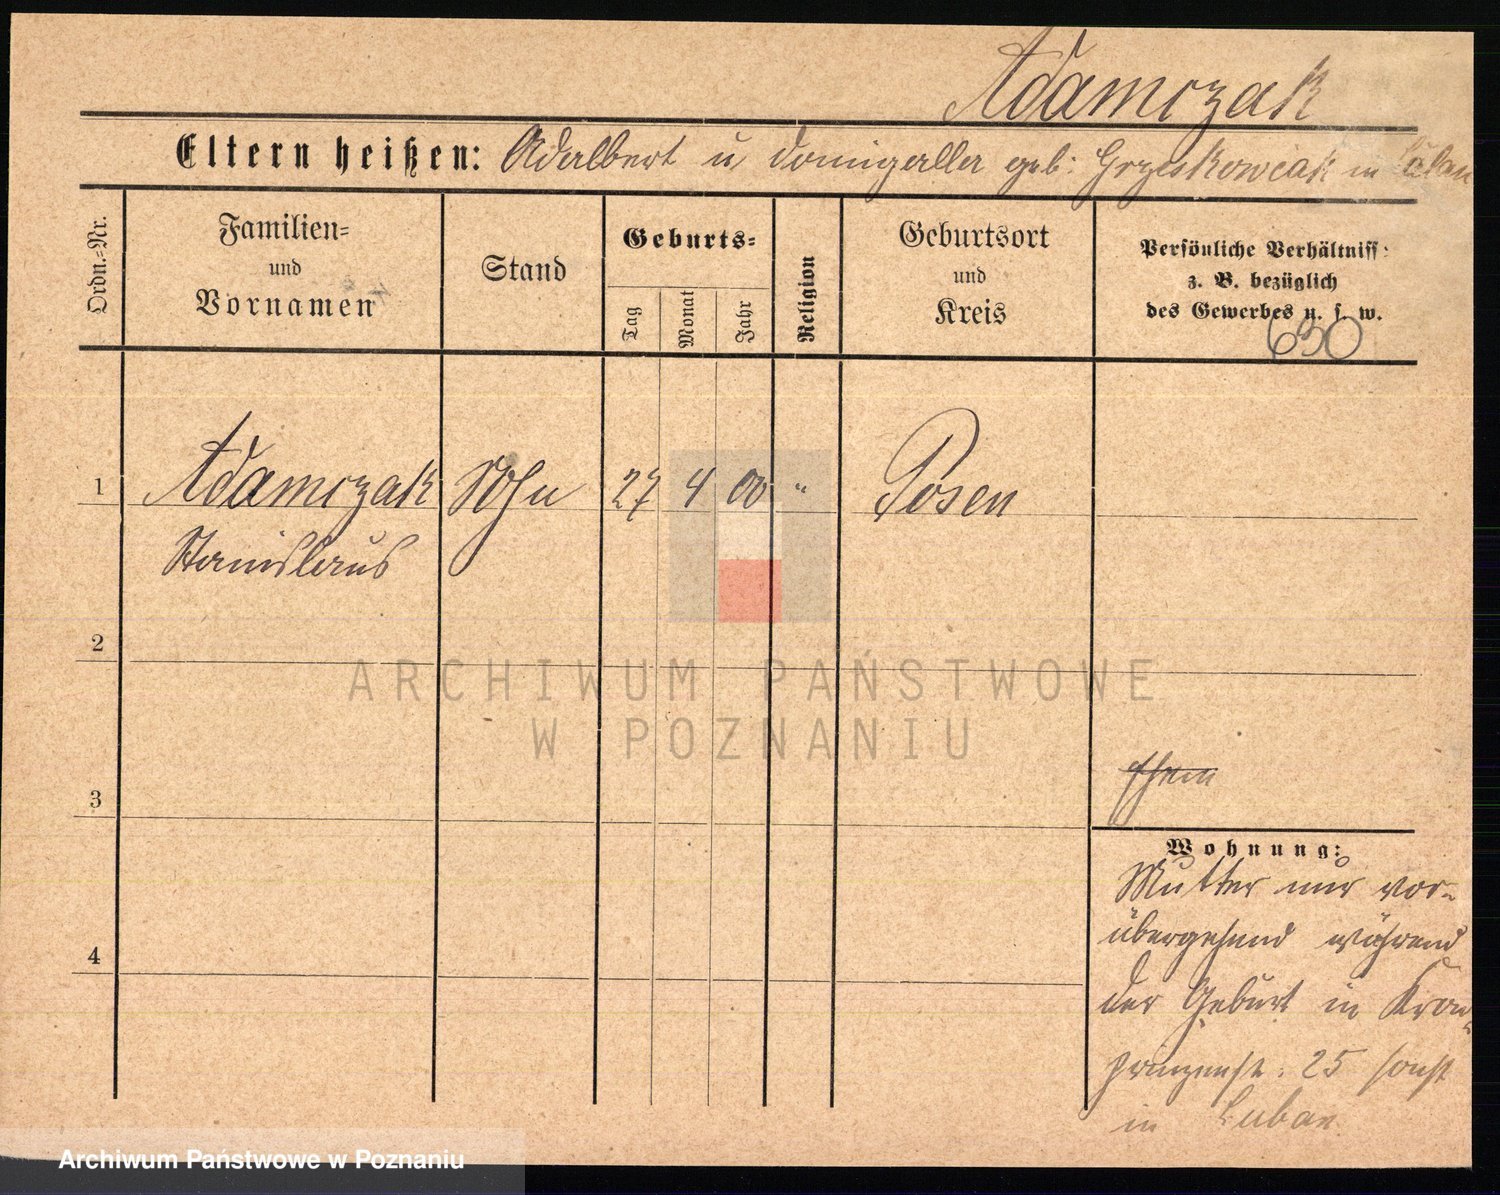 Adamczak
Eltern heißen: Adalbert u geb: Grzeskowiak in
Ordn.-Nr.
Familien=
und
Vornamen
Stand
Geburts=
Tag
Monat
Jahr
Religion
Geburtsort
und
Kreis
Persönliche Verhältniss
z. B. bezüglich
des Gewerbes u. s. w.
630
1 Adamczak Sohn 27 4 00 " Posen
Stanislaus
2
3
4
Wohnung:
Mutter nur vor-
übergehend während
der Geburt in Kron-
prinzenst. 25 sonst
in Luban
ARCHIWUM PAŃSTWOWE
W POZNANIU
Archiwum Państwowe w Poznaniu